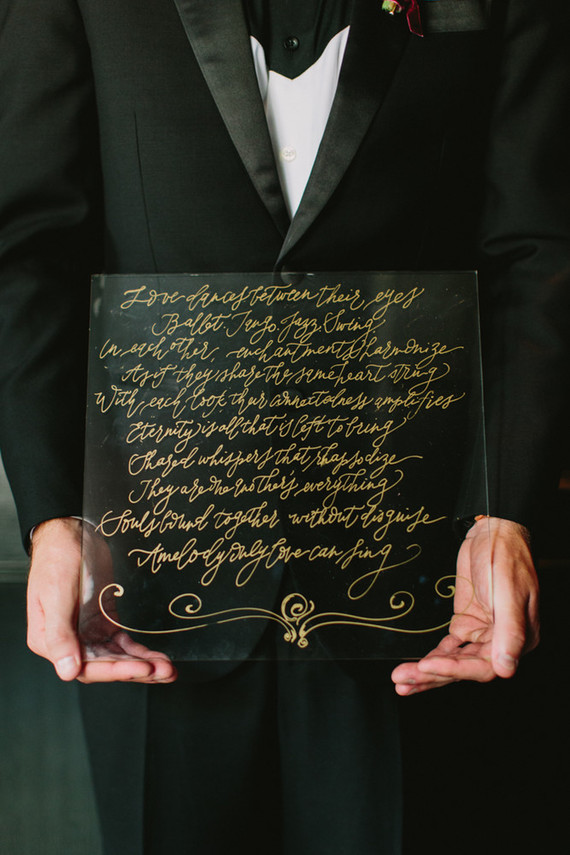 Love dances between their eyes
Ballet. Tango. Jazz. Swing
In each other, enchantments harmonize
As if they share the same heart string
With each look their connectedness amplifies
Eternity is all that is left to bring
Shared whispers that rhapsodize
They are one anothers everything
Souls bound together without disguise
A melody only love can sing